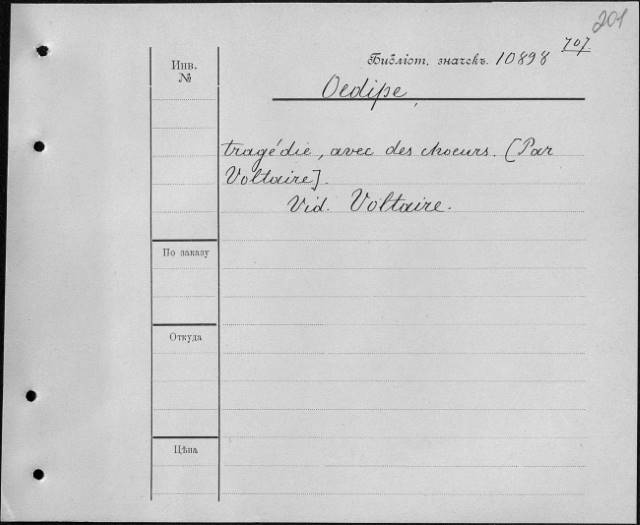 201
707
Инв.
№
Библіот. значекъ. 10898
Oedipe,
tragédie, avec des choeurs. [Par
Voltaire].
Vid. Voltaire.
По заказу
Откуда
Цѣна